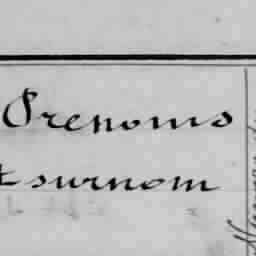 Prenoms
surnom